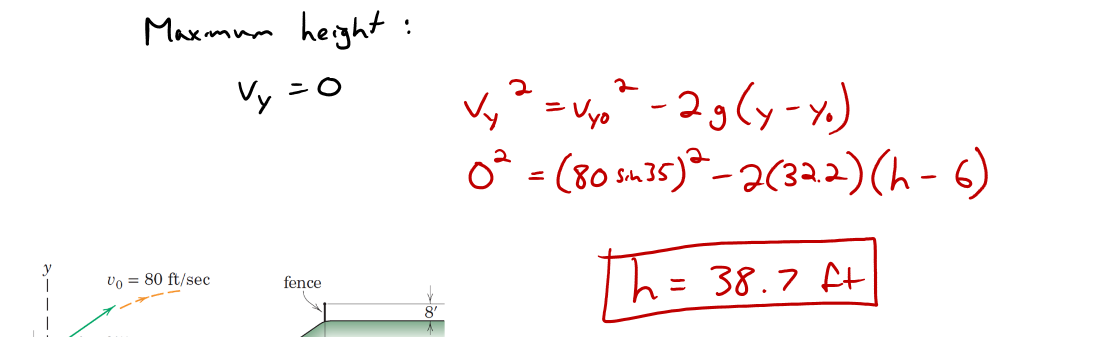 Maximum height :
v_y = 0
v_y^2 = v_yo^2 - 2g(y - y_o)
0^2 = (80 sin 35)^2 - 2(32.2)(h - 6)
h = 38.7 ft
y
v_0 = 80 ft/sec
fence
8'